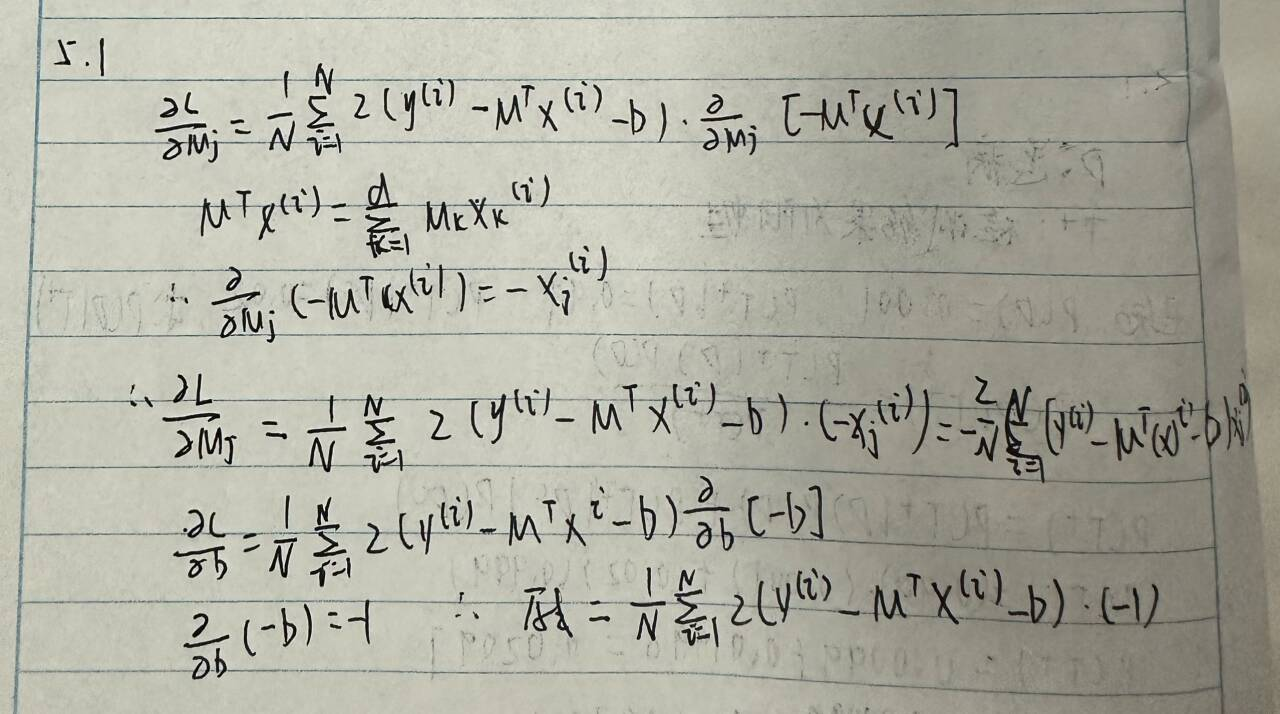 5.1
∂L/∂M_j = 1/N Σ_{i=1}^{N} 2(y^{(i)} - M^T x^{(i)} - b) · ∂/∂M_j [-M^T x^{(i)}]
M^T x^{(i)} = Σ_{k=1}^{d} M_k x_k^{(i)}
∴ ∂/∂M_j (-M^T x^{(i)}) = -x_j^{(i)}
∴ ∂L/∂M_j = 1/N Σ_{i=1}^{N} 2(y^{(i)} - M^T x^{(i)} - b) · (-x_j^{(i)}) = -2/N Σ_{i=1}^{N} (y^{(i)} - M^T (x)^{(i)} - b) x_j^{(i)}
∂L/∂b = 1/N Σ_{i=1}^{N} 2(y^{(i)} - M^T x^{i} - b) ∂/∂b [-b]
∂/∂b (-b) = -1 ∴ 原式 = 1/N Σ_{i=1}^{N} 2(y^{(i)} - M^T x^{(i)} - b) · (-1)